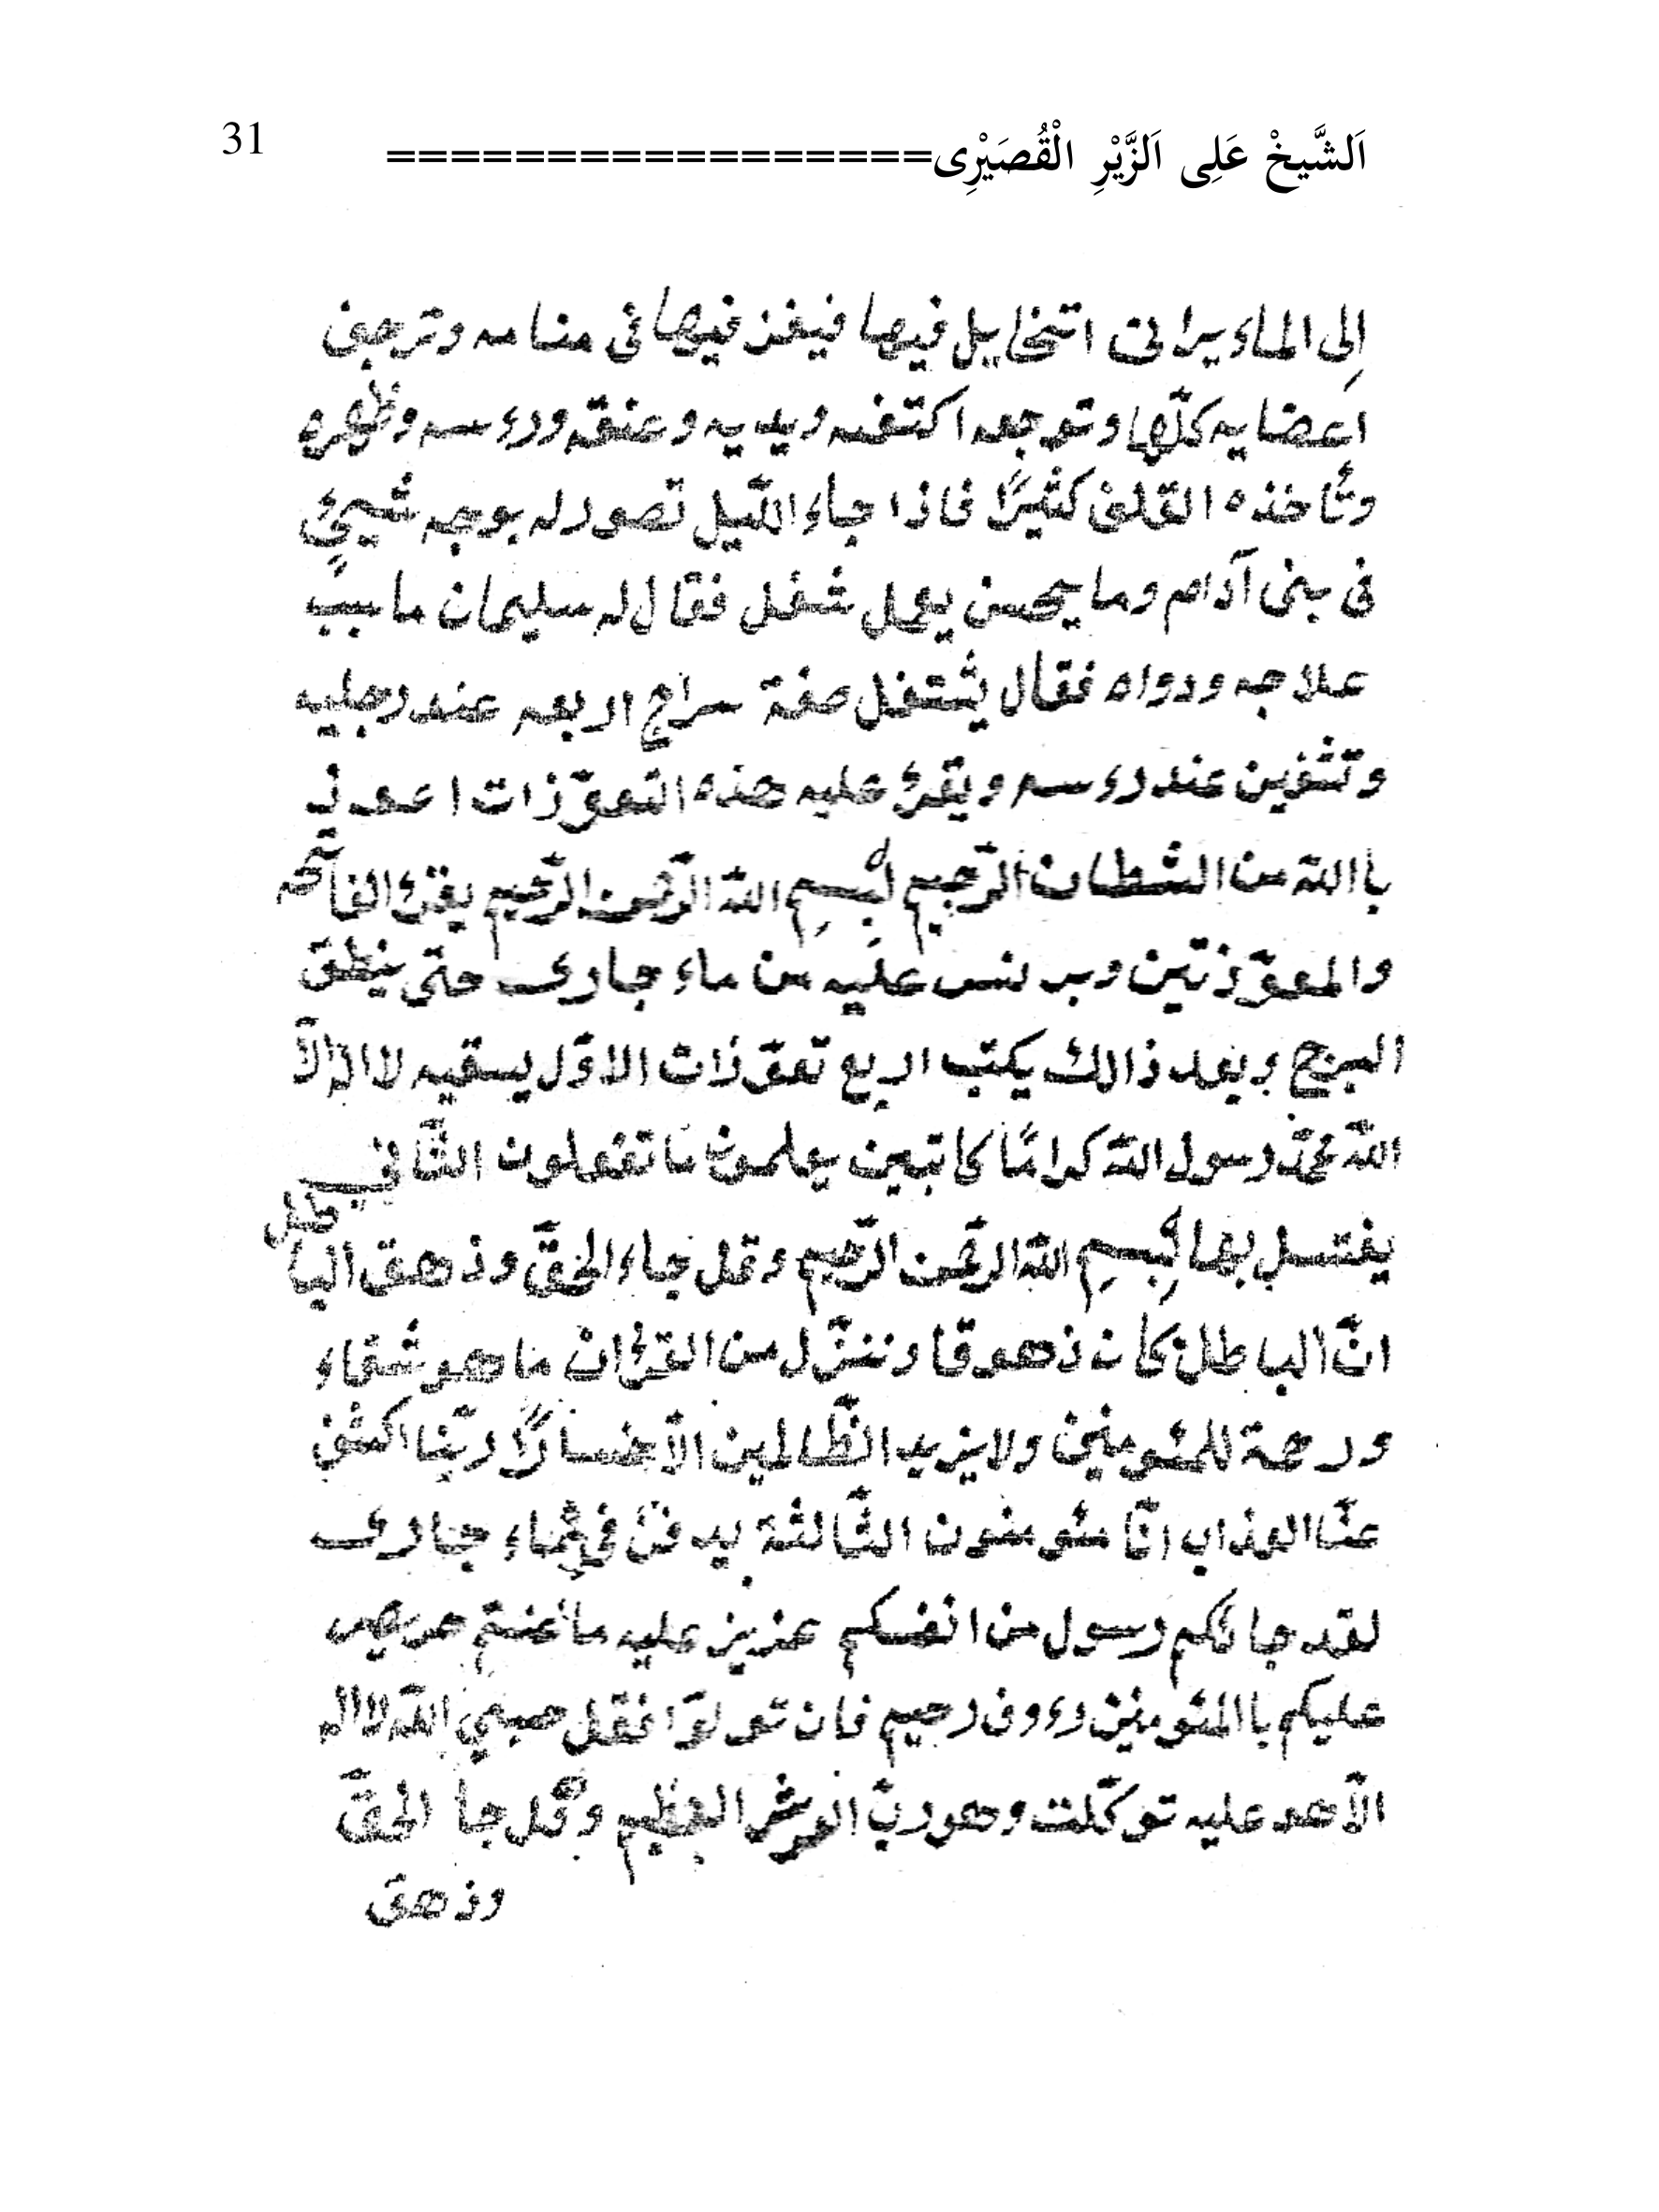 اَلشَّيخْ عَلِى اَلزَّيْرِ الْقُصَيْرِى================= 31
اِلى الماء يرانى اتخايل فيها فيفز فيها فى منامه وترجف
اعضايه كلّها وتوجعه اكتفه ويديه وعنقه ورءسه وظهره
وتأخذه القلق كثيرًا فاذا جاء اللّيل تصور له بوجه شيئ
فى بنى آدام وما يحسن يعمل شغل فقال له سليمان ما سبب
علاجه ودواه فقال يشتغل صفة سراج اربعه عند رجليه
وتنثين عند رءسه ويقرئ عليه هذه التعوّذات اعوذ
با اللّه من الشطان الرّجيم بِسمِ اللّه الرّحمن الرّحيم يقرئ الفاتحه
والمعوّذتين وبرش عليه من ماء جارى حتى ينطق
البرج وبعد ذالك يكتب اربع تعوّذات الاوّل يسقيه لا اله الّا
اللّه محمّد رسول اللّه كرامًا كاتبين يعلمون ما تفعلون الثّانى
يغتسل بها بِسمِ اللّه الرّحمن الرّحيم وقل جاء الحقّ وذهق الباطل
انّ الباطل كان ذهوقا وننزّل من القرءان ما هو شفاء
ورحمة للمئومنين ولا يزيد الظّالمين الّا خسارًا ربّنا اكشف
عنّا العذاب انّا مئومنون الثّالثة يدفن فى ماء جارى
لقد جائكم رسول من انفسكم عزيز عليه ما عنتم حريص
عليكم با المئومنين رءوف رحيم فان تولوّا فقل حسبي اللّه لا اله
الّا هو عليه توكّلت وهو ربّ العرش العظيم وقل جا الحقّ
وذهق